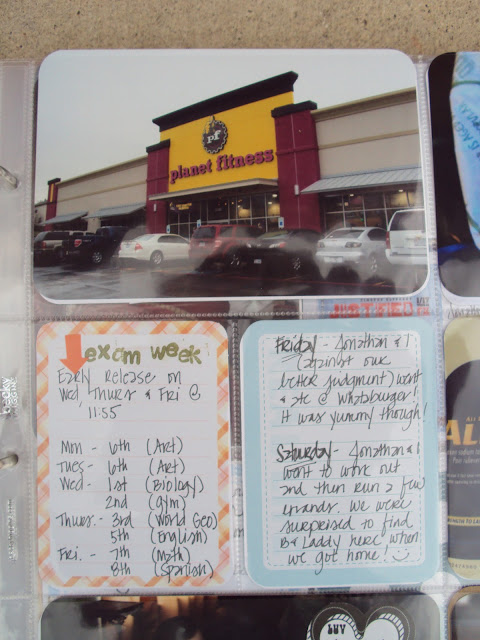 pf
planet fitness
JUSTIFIED
exam week
Early release on
Wed, Thurs & Fri @
11:55
Mon - 6th (Art)
Tues - 6th (Art)
Wed - 1st (Biology)
2nd (gym)
Thurs. - 3rd (World Geo)
5th (English)
Fri. - 7th (Math)
8th (Spanish)
Friday - Jonathan & I
(against our
better judgment) went
& ate @ Whataburger!
It was yummy though!
Saturday - Jonathan & I
went to work out
and then run a few
errands. We were
surprised to find
B & Laddy here when
we got home!
AL
LUV